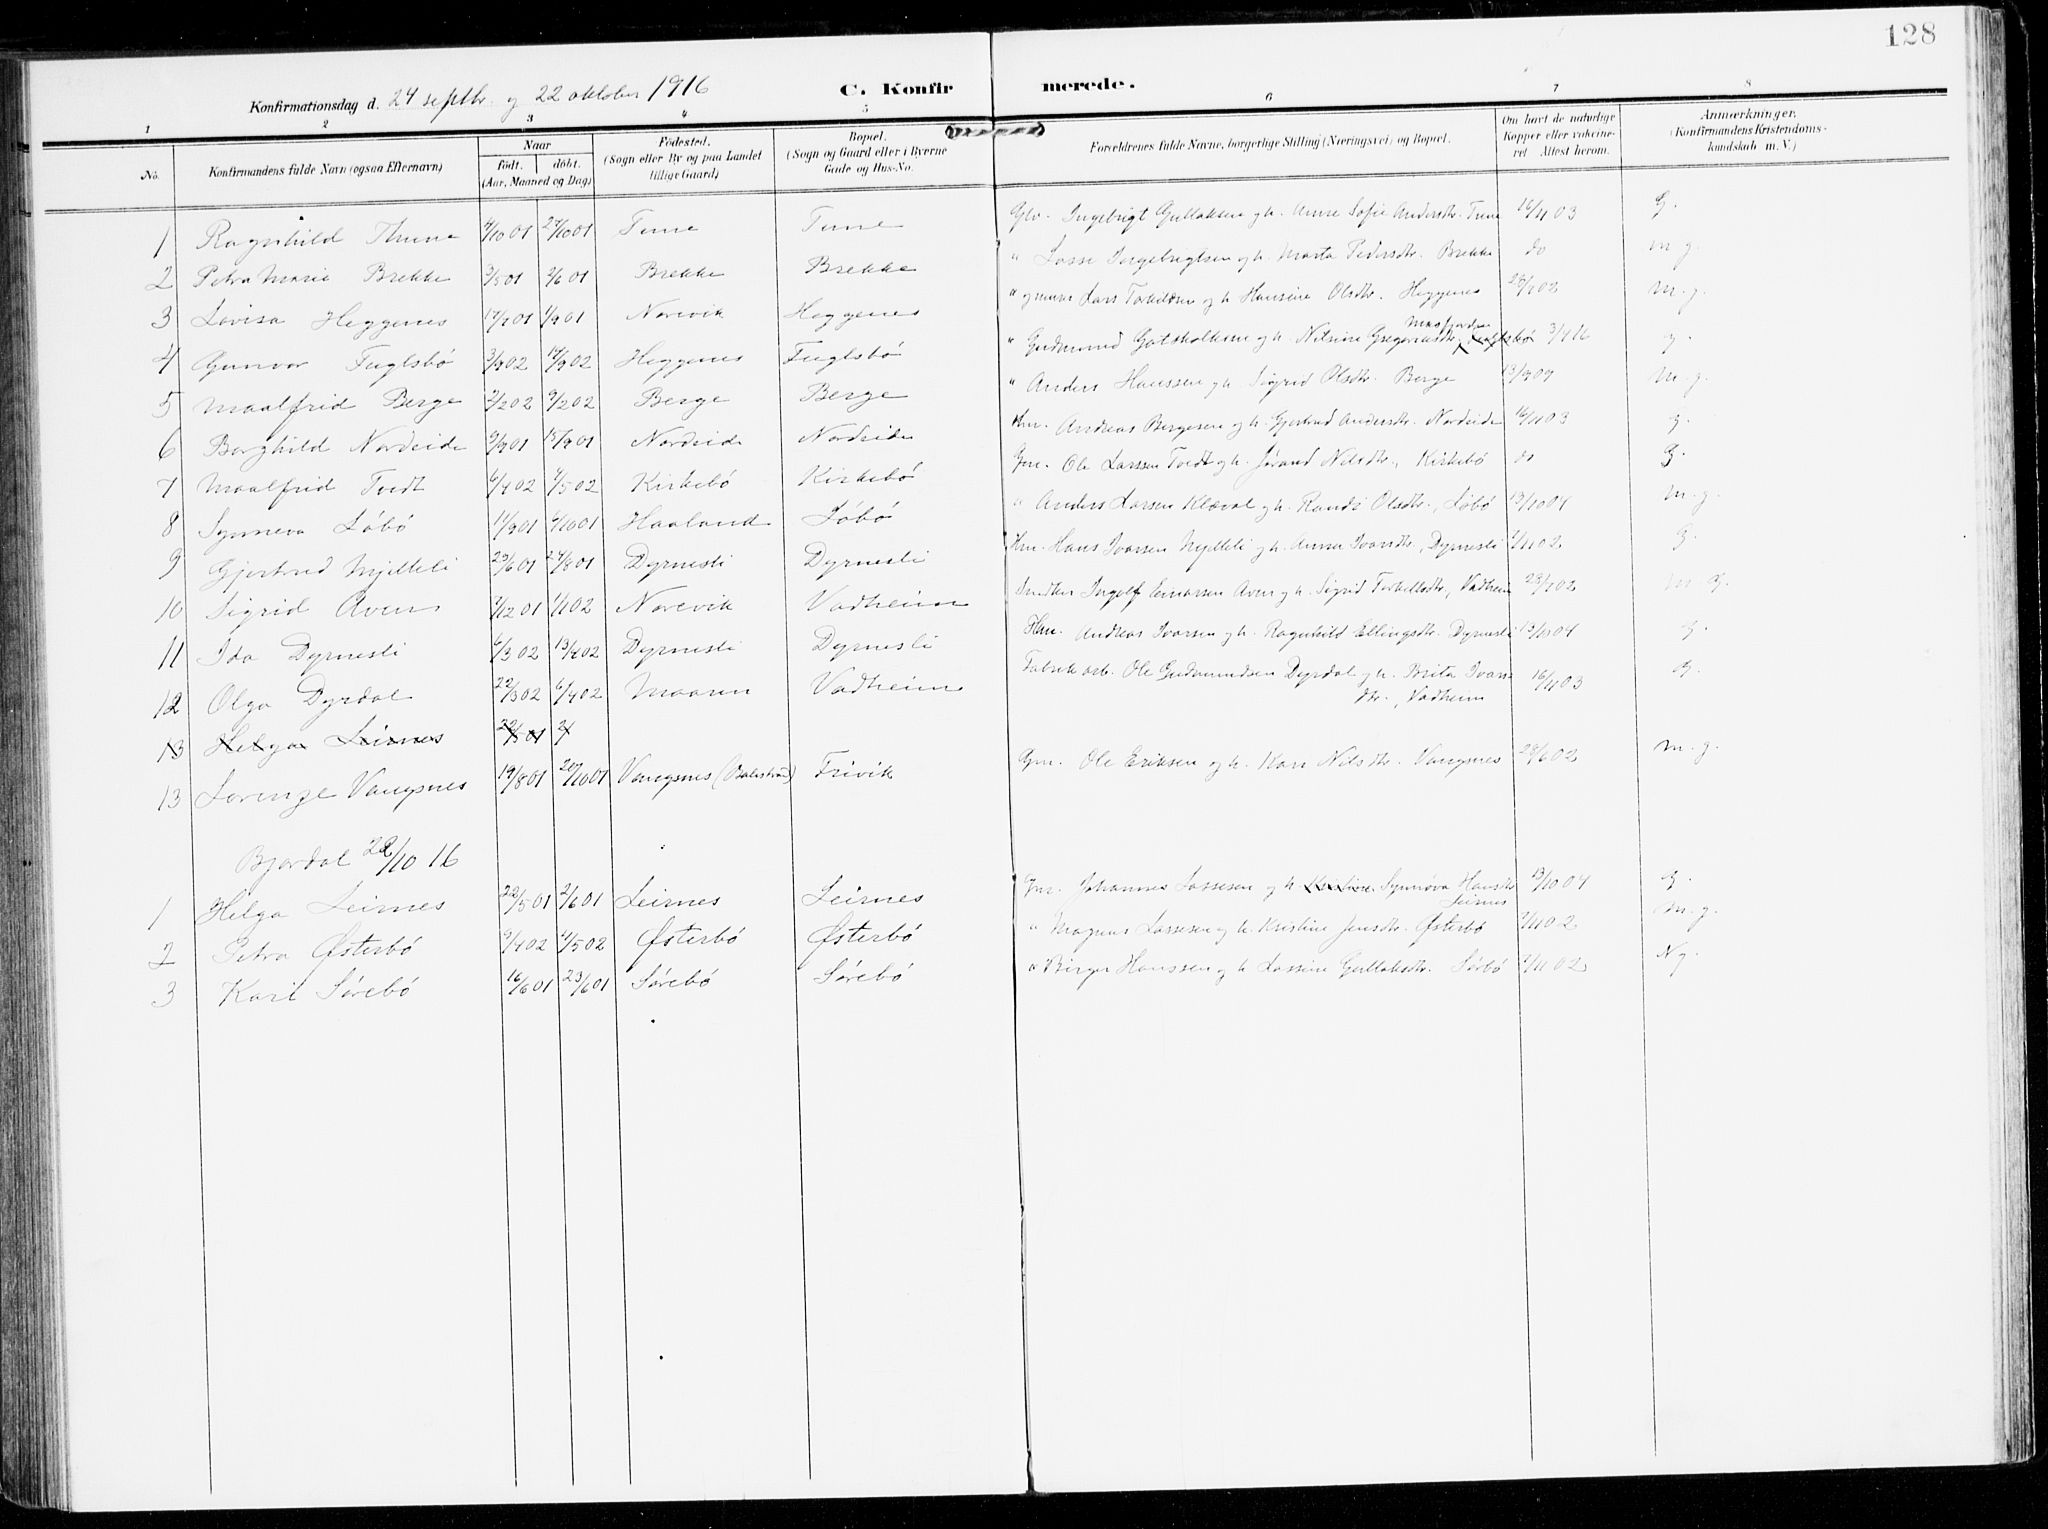 128
Konfirmationsdag d. 24 septbr. og 22 oktober 1916 C. Konfirmerede.
1 2 3 4 5 6 7 8
No. Konfirmandens fulde Navn (ogsaa Efternavn) Naar født. døbt. (Aar, Maaned og Dag) Fødested. (Sogn eller By og paa Landet tillige Gaard) Bopæl. (Sogn og Gaard eller i Byerne Gade og Hus-No. Forældrenes fulde Navne, borgerlige Stilling (Næringsvei) og Bopæl. Om havt de naturlige Kopper eller vakcineret Attest herom. Anmærkninger. (Konfirmandens Kristendomskundskab m. V.)
1 Ragnhild Thune 4/10 01 27/10 01 Tune Tune Glv. Ingebrigt Gullaksen g h. Anne Sofie Andersdtr. Tune 16/11 03 G.
2 Petra Marie Brekke 3/5 01 2/6 01 Brekke Brekke " Lasse Ingebrigtsen g h. Marta Pedersdtr. Brekke do m g
3 Lovisa Heggenes 17/7 01 1/9 01 Norevik Heggenes " Lars Torkildsen g h. Hansine Olsdtr. Heggenes 28/7 02 m. g.
4 Gunvor Fuglsbø 3/9 02 14/9 02 Heggenes Fuglsbø " Gudmund Gotskalksen g h. Nilsine Gregoriusdtr. Fuglsbø 3/9 16 g.
5 Maalfrid Berge 2/2 02 9/2 02 Berge Berge " Anders Hanssen g h. Sigrid Olsdtr. Berge 13/9 09 m. g.
6 Borghild Nordeide 9/9 01 15/9 01 Nordeide Nordeide Hm. Andreas Bergesen g h. Gjertrud Andersdtr. Nordeide 16/11 03 g.
7 Maalfrid Tvedt 6/4 02 4/5 02 Kirkebø Kirkebø Gm. Ole Larssen Tvedt g h. Jorand Nilsdtr., Kirkebø do g.
8 Synneva Løbø 11/9 01 6/10 01 Haaland Løbø " Anders Larsen Klæval g h. Randi Olsdtr., Løbø 13/10 04 m. g.
9 Gjertrud Mjelleli 29/6 01 24/8 01 Dyrnesli Dyrnesli Hm. Hans Ivarsen Mjelleli g h. Anna Ivarsdtr., Dyrnesli 7/11 02 g.
10 Sigrid Aven 7/12 01 1/1 02 Norevik Vadheim Ingolf Einarsen Aven g h. Sigrid Torkellsdtr., Vadheim 28/7 02 m g.
11 Ida Dyrnesli 6/3 02 13/4 02 Dyrnesli Dyrnesli Hm. Andreas Ivarsen g h. Ragnhild Ellingsdtr. Dyrnesli 13/10 04 g.
12 Olga Dyrdal 22/3 02 6/4 02 Maaren Vadheim Fabrik arb. Ole Gudmundsen Dyrdal g h. Brita Ivarsdtr., Vadheim 16/11 03 g.
13 Helga Leirnes 22/5 01 2/
13 Lorenze Vangsnes 19/8 01 20/10 01 Vangsnes (Balestrand) Frivik Gm. Ole Eriksen g h. Kari Nilsdtr. Vangsnes 28/6 02 m. g.
Bjordal 22/10 16
1 Helga Leirnes 22/5 01 2/6 01 Leirnes Leirnes Gm. Johannes Lassesen g h. Kristine Synnøva Hansdtr Leirnes 13/10 04 g.
2 Petra Østerbø 9/4 02 4/5 02 Østerbø Østerbø " Magnus Lassesen g h. Kristine Jensdtr. Østerbø 7/11 02 m. g.
3 Kari Sørebø 16/6 01 23/6 01 Sørebø Sørebø " Birger Hanssen g h. Lassine Gullaksdtr. Sørbø 7/11 02 Ng.